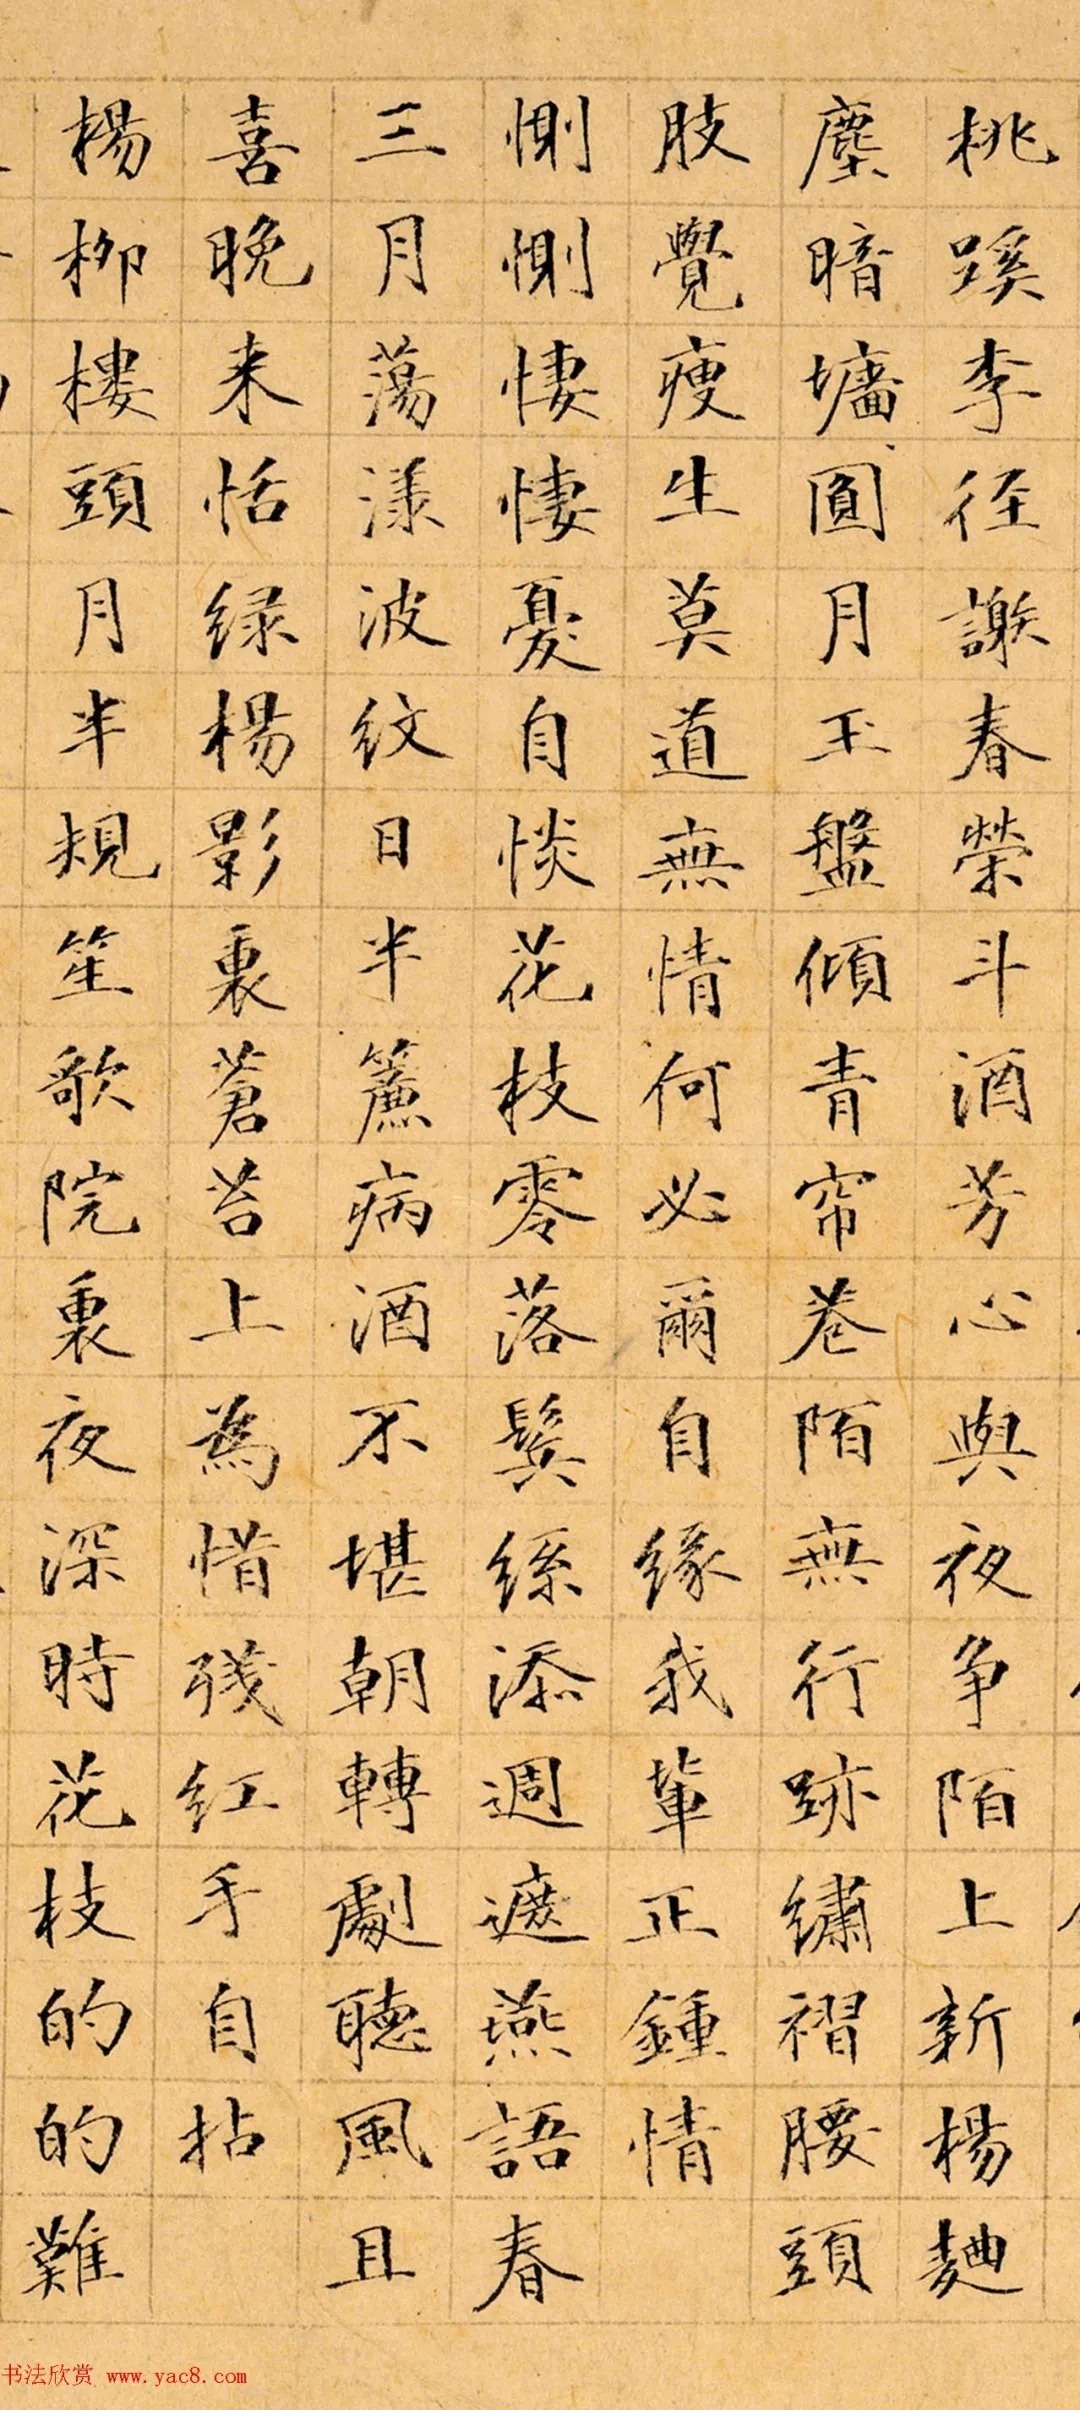 桃蹊李径謝春榮斗酒芳心與夜争陌上新楊麯
塵暗墻圓月玉盤傾青帘巷陌無行跡繡褶腰頭
肢覺瘦生莫道無情何必爾自緣我輩正鍾情
惻惻悽悽憂自惔花枝零落鬂絲添週遮燕語春
三月蕩漾波紋日半簾病酒不堪朝轉劇聽風且
喜晚来恬緑楊影裏蒼苔上為惜残紅手自拈
楊柳樓頭月半規笙歌院裏夜深時花枝的的難
书法欣赏 www.yac8.com